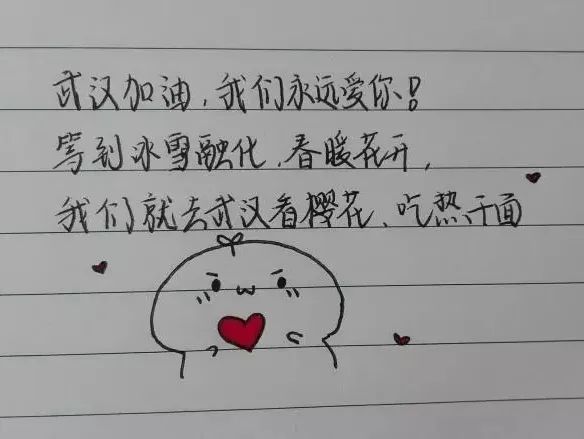 武汉加油，我们永远爱你！
等到冰雪融化，春暖花开，
我们就去武汉看樱花、吃热干面